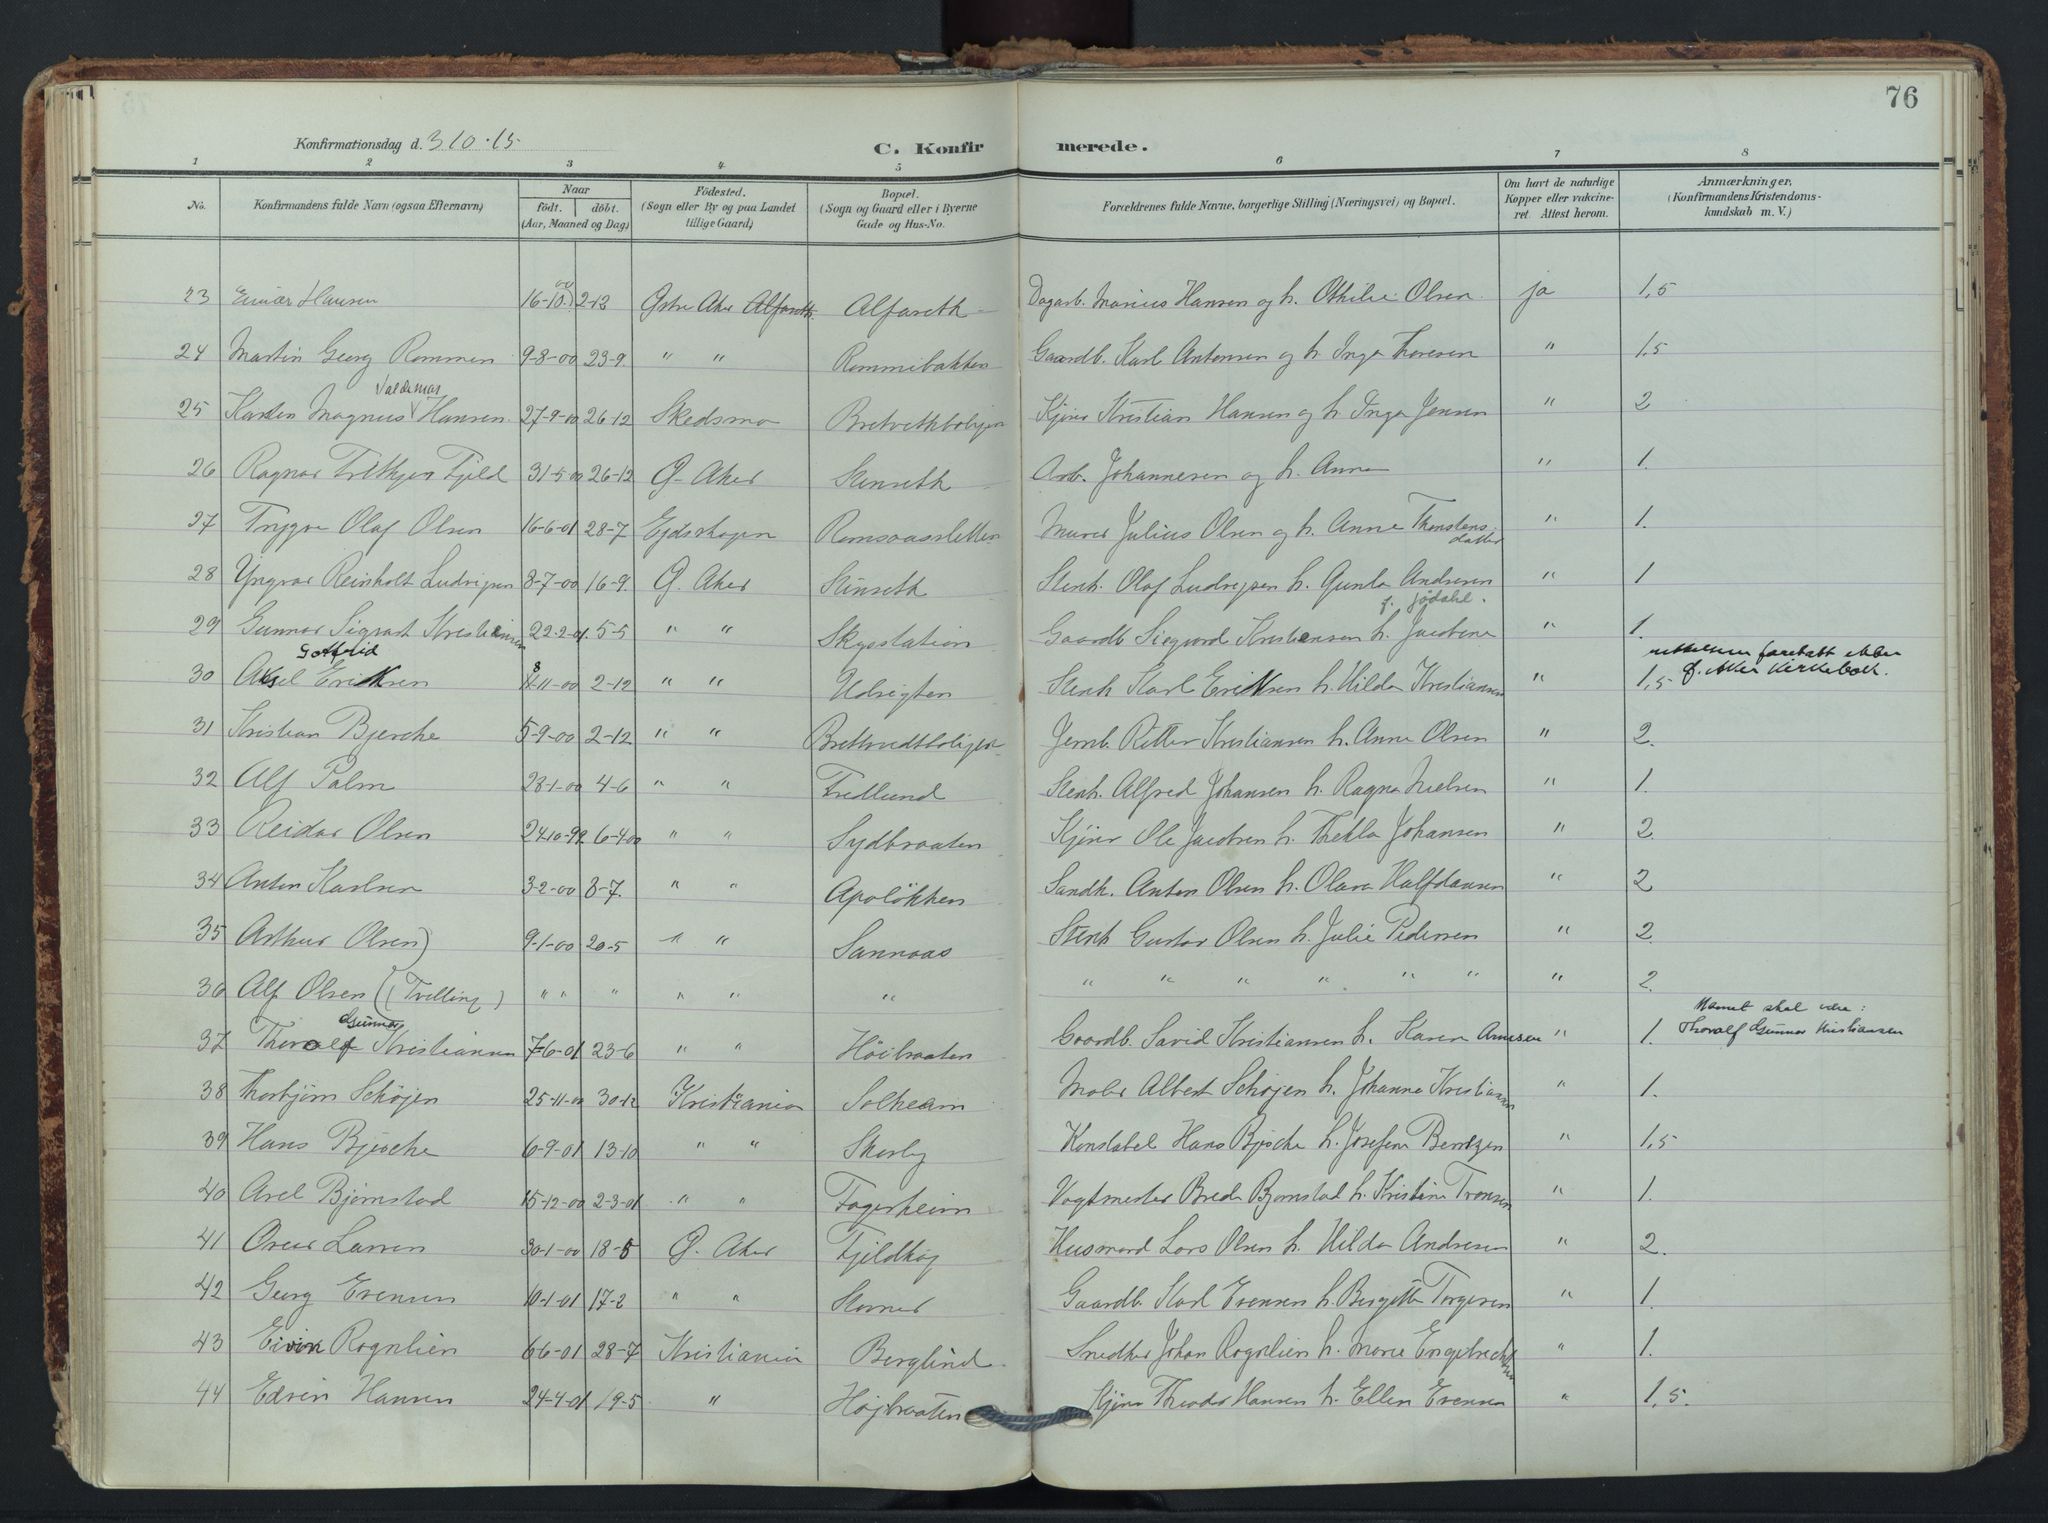 76
Konfirmationsdag d. 3 10 · 15
C. Konfirmerede.
1 2 3 4 5 6 7 8
No. Konfirmandens fulde Navn (ogsaa Efternavn) Naar født. døbt. (Aar, Maaned og Dag) Fødested. (Sogn eller By og paa Landet tillige Gaard) Bopæl. (Sogn og Gaard eller i Byerne Gade og Hus-No. Forældrenes fulde Navne, borgerlige Stilling (Næringsvei) og Bopæl. Om havt de naturlige Kopper eller vakcineret. Attest herom. Anmærkninger. (Konfirmandens Kristendomskundskab m. V.)
23 Einar Hansen 16-10-00 2-12 Østre Aker Alfareth Dagarb. Marius Hansen og h. Othilie Olsen ja 1,5
24 Martin Georg Rommen 9-8-00 23-9. " " Rommibakken Gaardb. Karl Antonsen og h. Inga Thoresen " 1,5
25 Karsten Magnus Valdemar Hansen 27-9-00 26-12 Skedsmo Bretvethboligen Kjører Kristian Hansen og h. Inga Jensen " 2
26 Ragnar Fritkjov Fjeld 31-5-00 26-12 Ø. Aker Stenseth Arb. Johannesen og h. Anna " 1.
27 Trygve Olaf Olsen 16-6-01 28-7 Ejdskogen Romsaassletten Murer Julius Olsen og h. Anne Thorstensdatter " 1.
28 Yngvar Reinholt Ludvigsen 8-7-00 16-9. Ø. Aker Stenseth Stenh. Olaf Ludvigsen h. Gunda Andresen " 1
29 Gunnar Sigvart Kristiansen 22-2-01. 5-5 " " Skysstation Gaardb. Siegvard Kristiansen h. Jacobine f. Jødahl. " 1.
30 Aksel Gotfrid Eriksen 8-11-00 2-12 " " Udsigten Stenh Karl Eriksen h. Hilda Kristiansen " 1,5 rettelsen foretatt etter Ø. Aker kirkebok.
31 Kristian Bjerche 5-9-00 2-12 " " Bretvedtboligen Jernb. Petter Kristiansen h. Anne Olsen " 2.
32 Alf Palm 28-1-00 4-6 " " Fredlund Stenh. Alfred Johansen h. Ragna Nielsen " 1.
33 Reidar Olsen 24-10-99. 6-4-00 " " Sydbraaten Kjører Ole Jacobsen h. Thekla Johansen " 2.
34 Anton Karlsen 3-2-00 8-7. " " Apaløkken Sandk. Anton Olsen h. Olava Halfdansen " 2
35 Arthur Olsen) 9-1-00 20-5 " " Sannaas Stenh Gustav Olsen h. Julie Pedersen " 2.
36 Alf Olsen (Tvilling) " " " " " " " " " " " " " 2.
37 Thoralf Gunnar Kristiansen 7-6-01 23-6 " " Høibraaten Gaardb. David Kristiansen h. Karen Arnesen " 1. Navnet skal være: Thoralf Gunnar Kristiansen
38 Thorbjørn Schøjen 25-11-00 30-12 Kristiania Solheim Maler Albert Schøjen h. Johanna Kristiansen " 1.
39 Hans Bjerche 6-9-01 13-10 " " Skorby Konstabel Hans Bjerche h. Josefine Berntzen " 1,5
40 Axel Bjørnstad 15-12-00 2-3-01 " " Fagerheim Vogtmester Brede Bjørnstad h. Kristine Tronsen " 1.
41 Oscar Larsen 30-1-00 18-5 Ø. Aker Fjeldhøg Husmand Lars Olsen h. Hilda Andresen " 2.
42 Georg Evensen 10-1-01 17-2 " " Stovner Gaardb. Karl Evensen h. Bergitte Torgersen " 1.
43 Eivin Rognlien 6-6-01 28-7 Kristiania Berglind Snedker Johan Rognlien h. Marie Engebrechtsen " 1.
44 Edvin Hansen 24-4-01 19-5 " Højbraaten Kjører Theodor Hansen h. Ellen Evensen " 1,5.